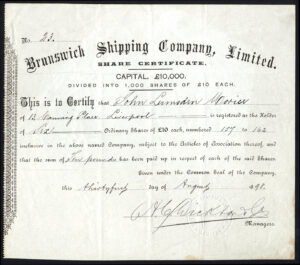 No. 23.
Brunswick Shipping Company, Limited.
SHARE CERTIFICATE.
CAPITAL, £10,000.
DIVIDED INTO 1,000 SHARES OF £10 EACH.
This is to Certify that John Lumsden
of 12 Place Liverpool is registered as the Holder
of Six Ordinary Shares of £10 each, numbered 157 to 162
inclusive in the above named Company, subject to the Articles of Association thereof, and
that the sum of Ten pounds has been paid up in respect of each of the said Shares.
Given under the Common Seal of the Company,
this thirtyfirst day of August
Managers.